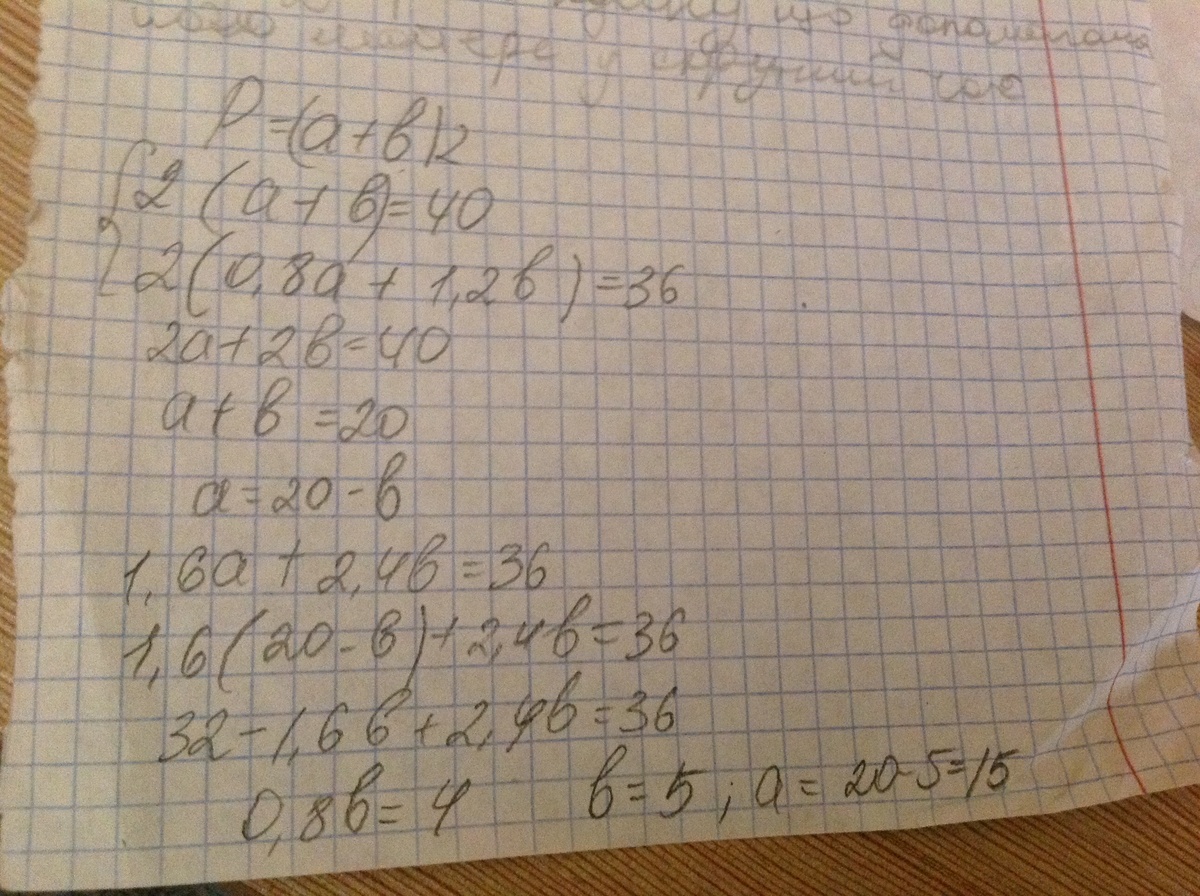 що допомагала
у скрутний час
P=(a+b)2
{2(a+b)=40
2(0,8a+1,2b)=36
2a+2b=40
a+b=20
a=20-b
1,6a+2,4b=36
1,6(20-b)+2,4b=36
32-1,6b+2,4b=36
0,8b=4 b=5; a=20-5=15